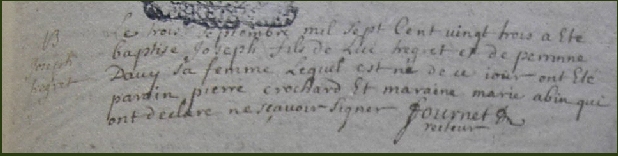 B
Joseph
hegret
Le trois septembre mil sept Cent vingt trois a Eté
baptise Joseph fils de Luc hegret et de perinne
Davy sa femme Lequel est né de ce iour ont Eté
parain pierre crochard Et maraine marie abin qui
ont declare ne sçavoir signer Journet
recteur